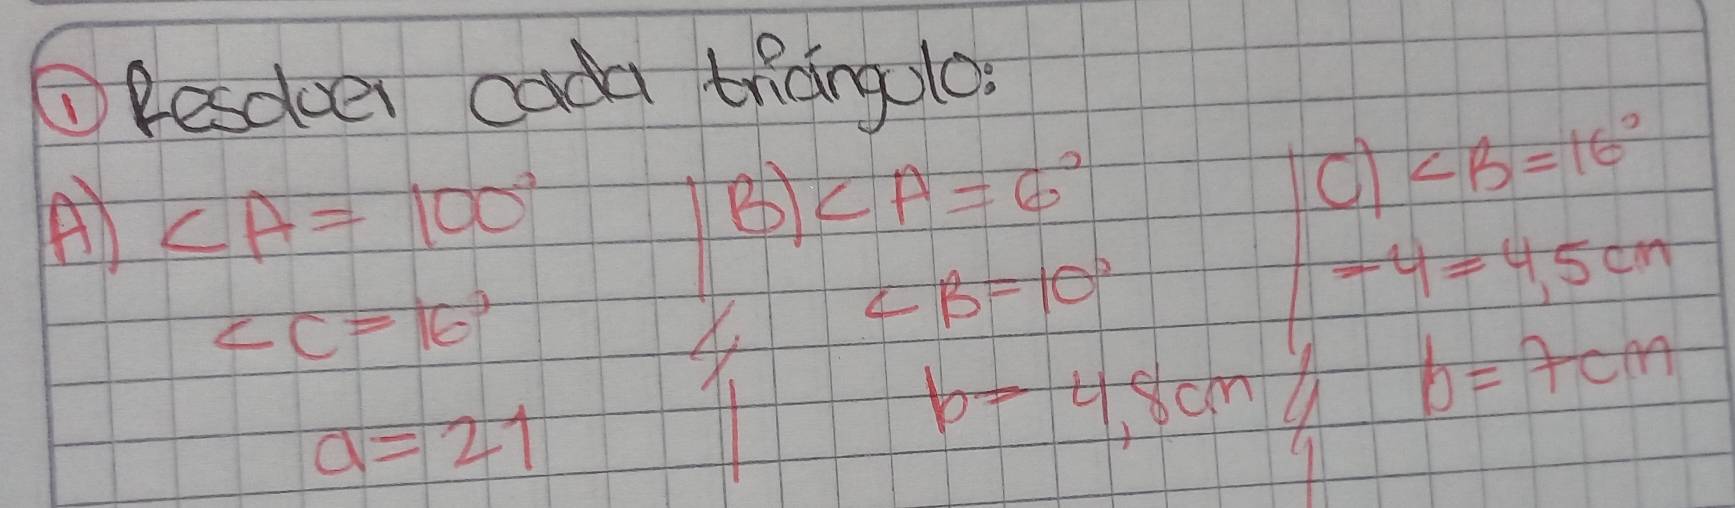 ① Resolver cada triángulo:
A) <A = 100°
<C = 16°
a = 21
B) <A = 6°
<B = 10°
b = 4,8cm
C) <B = 16°
-4 = 4,5cm
b = 7cm